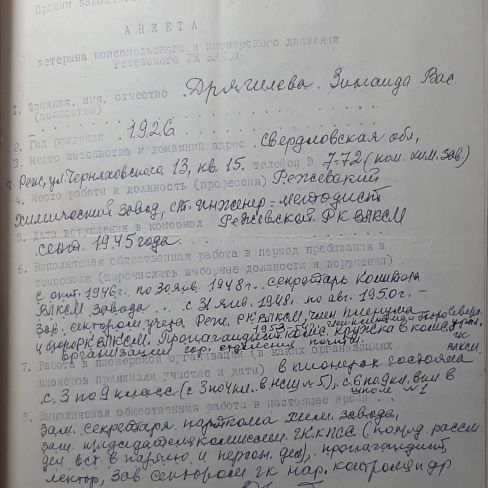 Просим заполнить
АНКЕТА
ветерана комсомольского и пионерского движения
Режевского ГК ВЛКСМ
1. Фамилия, имя, отчество Дрягилева Зинаида Вас.
(полностью)
2. Год рождения 1926
3. Место жительство и домашний адрес Свердловская обл,
г. Реж, ул. Черняховского 13, кв 15. телефон в 7-72 (ком. хим. зав)
4. Место работы и должность (профессия) Режевский
химический завод, ст. инженер-методист
5. Дата вступления в комсомол Режевской РК ВЛКСМ
сент. 1945 года
6. Выполняемая общественная работа в период пребывания в
комсомоле (перечислить выборные должности и поручения)
с окт. 1946г. по 30 янв. 1948г. секретарь комитета
ВЛКСМ завода ... с 31 янв. 1948г. по авг. 1950г. –
Зав. сектором учета Реж. РК ВЛКСМ, член пленума
и бюро РК ВЛКСМ. Пропагандист кружка в комс.
организации
7. Работа в пионерской организации (в каких организациях
пионеров принимали участие и даты) в пионерах состояла
с 3 по 9 класс (с 3 по 4 кл. в НСШ № 5), с 6 по 9 кл. в
школе № 1
8. Выполняемая общественная работа в настоящее время
зам. секретаря парткома хим. завода,
зам. председателя комиссии ГК КПСС (по рассм
дел вст. в партию и персон. дел), пропагандист,
лектор, зав. сектором ГК нар. контроля и др